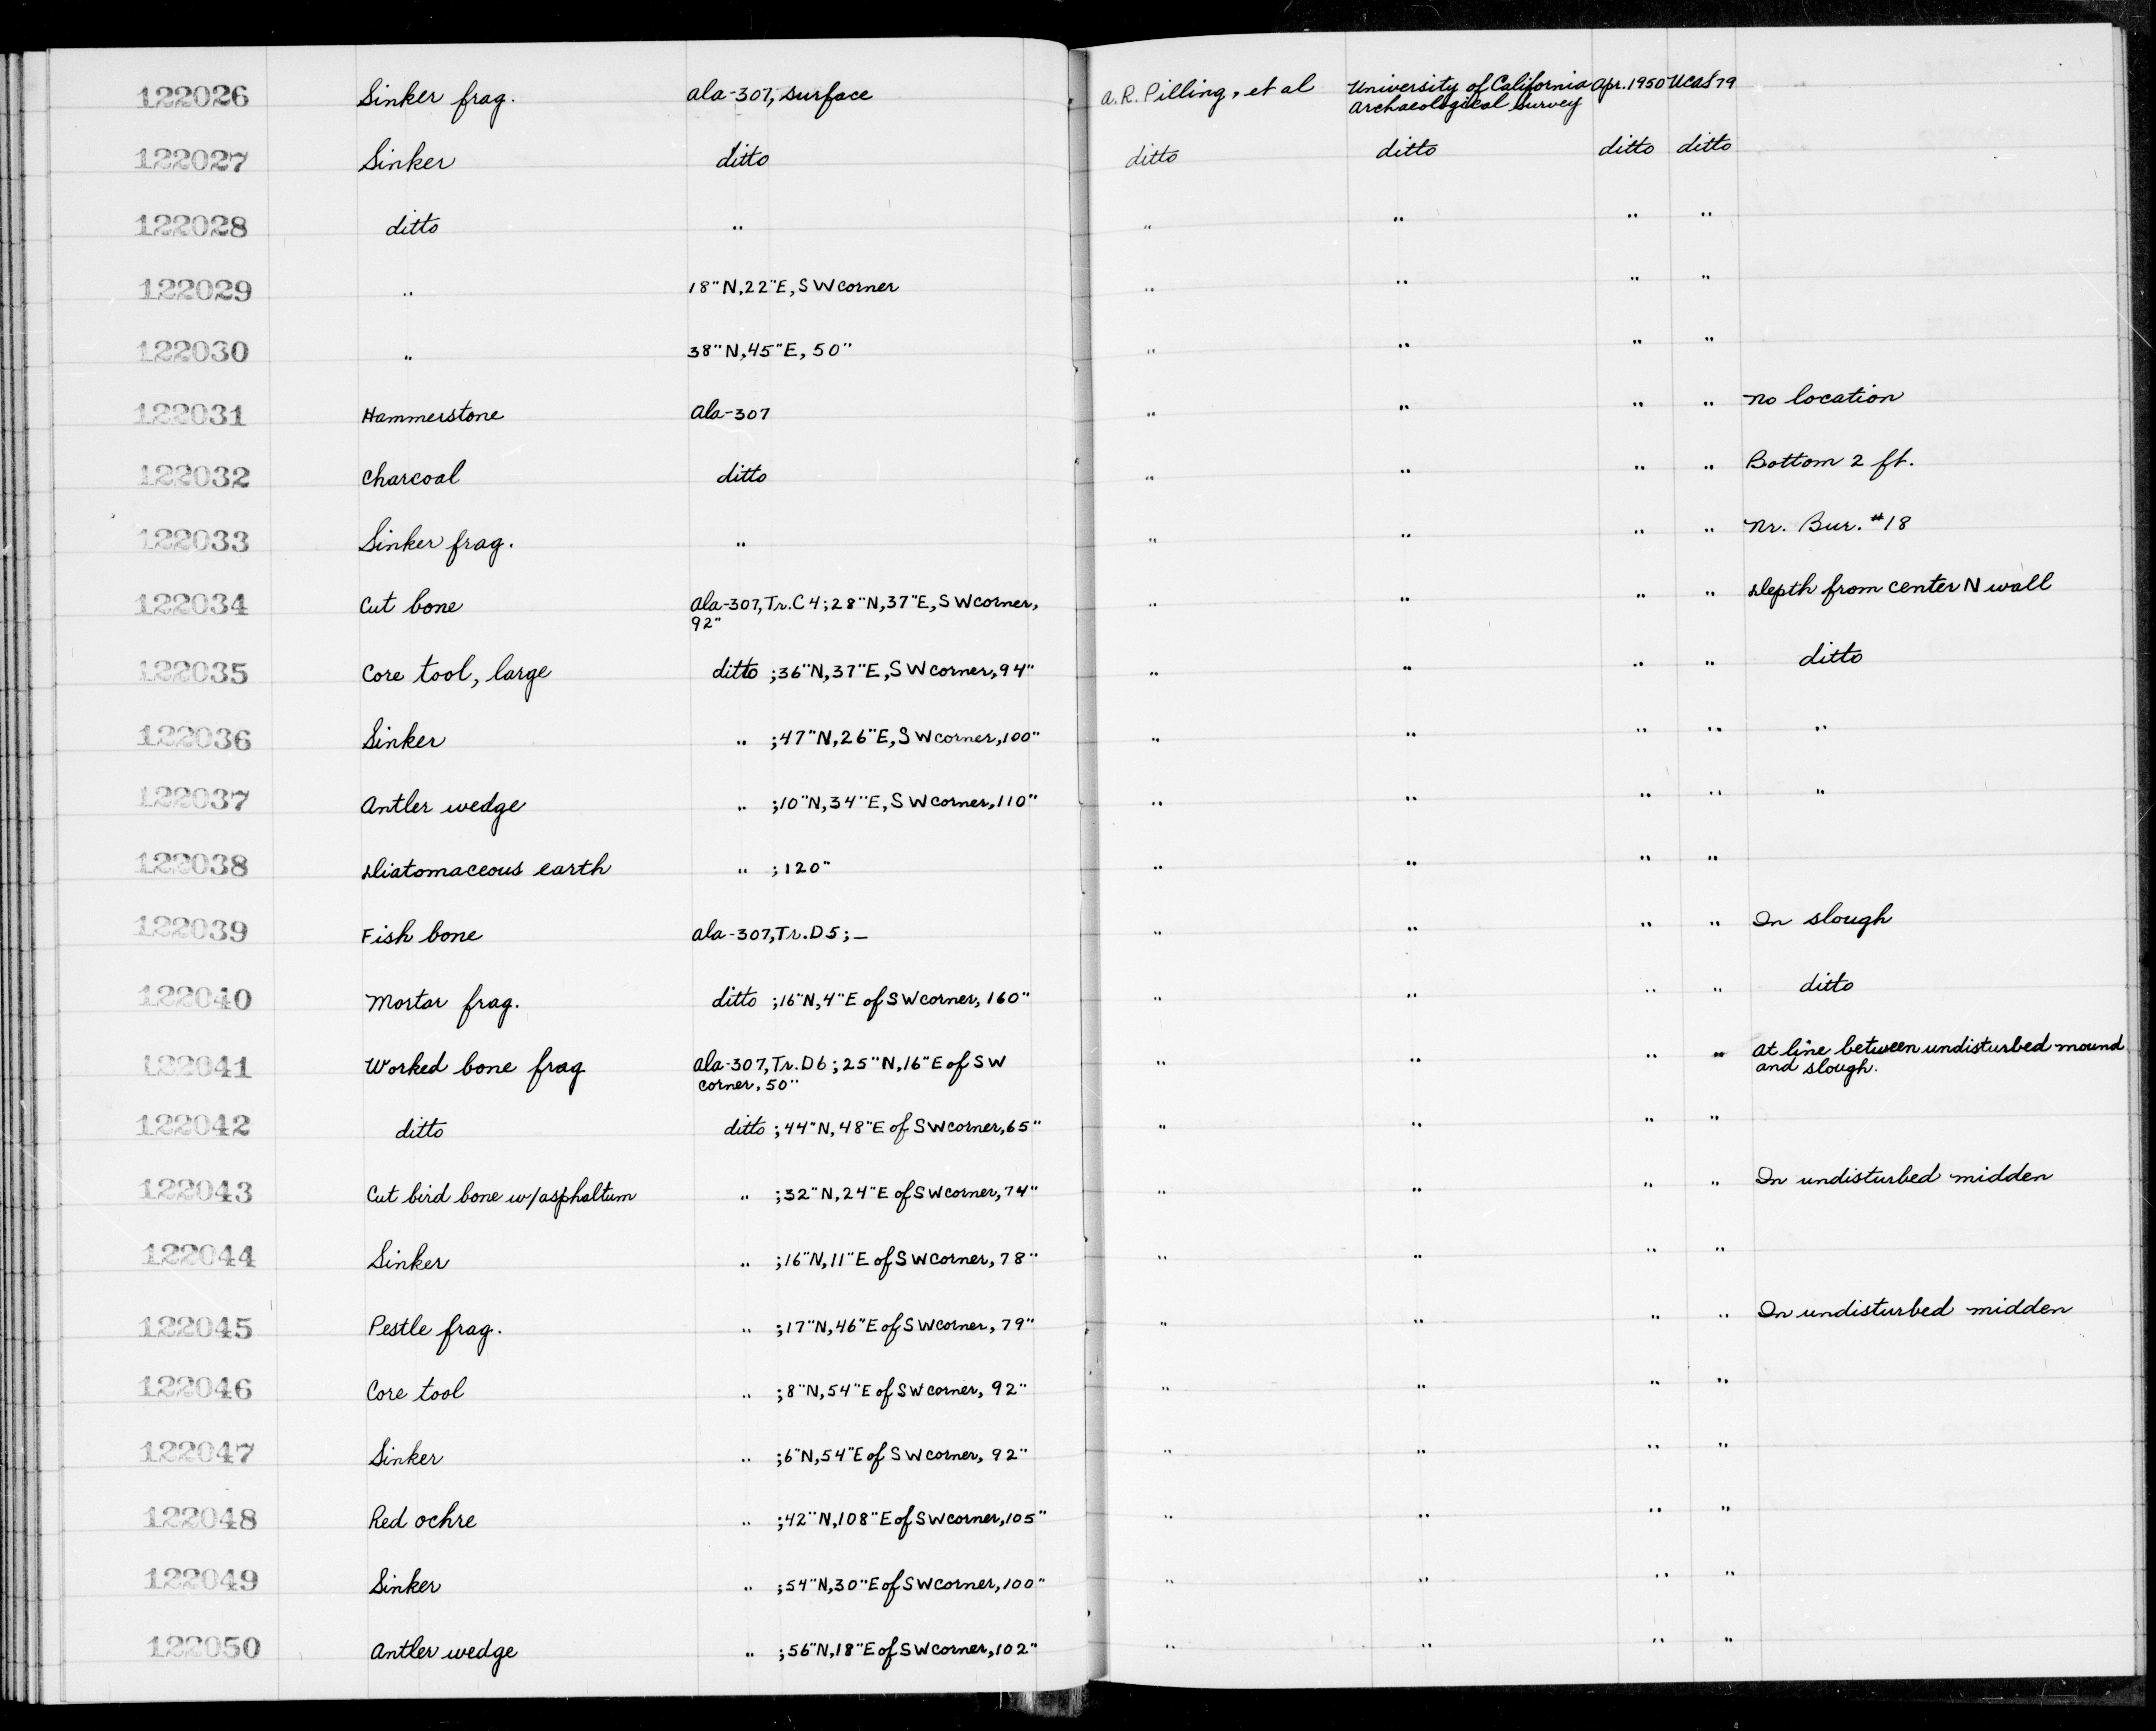 122026 Sinker frag. Ala-307, surface A.R. Pilling, et al University of California Apr. 1950 UCAS 79
Archaeological Survey
122027 Sinker ditto ditto ditto ditto ditto
122028 ditto " " " " "
122029 " 18"N, 22"E, SW corner " " " "
122030 " 38"N, 45"E, 50" " " " "
122031 Hammerstone Ala-307 " " " " No location
122032 Charcoal ditto " " " " Bottom 2 ft.
122033 Sinker frag. " " " " " Nr. Bur. #18
122034 Cut bone Ala-307, Tr. C4; 28"N, 37"E, SW corner, " " " " Depth from center N wall
92"
122035 Core tool, large ditto ; 36"N, 37"E, SW corner, 94" " " " " ditto
122036 Sinker " ; 47"N, 26"E, SW corner, 100" " " " " "
122037 Antler wedge " ; 10"N, 34"E, SW corner, 110" " " " " "
122038 Diatomaceous earth " ; 120" " " " "
122039 Fish bone Ala-307, Tr. D5; — " " " " In slough
122040 Mortar frag. ditto ; 16"N, 4"E of SW corner, 160" " " " " ditto
122041 Worked bone frag Ala-307, Tr. D6; 25"N, 16"E of SW " " " " At line between undisturbed mound
corner, 50" and slough.
122042 ditto ditto ; 44"N, 48"E of SW corner, 65" " " " "
122043 Cut bird bone w/asphaltum " ; 32"N, 24"E of SW corner, 74" " " " " In undisturbed midden
122044 Sinker " ; 16"N, 11"E of SW corner, 78" " " " "
122045 Pestle frag. " ; 17"N, 46"E of SW corner, 79" " " " " In undisturbed midden
122046 Core tool " ; 8"N, 54"E of SW corner, 92" " " " "
122047 Sinker " ; 6"N, 54"E of SW corner, 92" " " " "
122048 Red ochre " ; 42"N, 108"E of SW corner, 105" " " " "
122049 Sinker " ; 54"N, 30"E of SW corner, 100" " " " "
122050 Antler wedge " ; 56"N, 18"E of SW corner, 102" " " " "